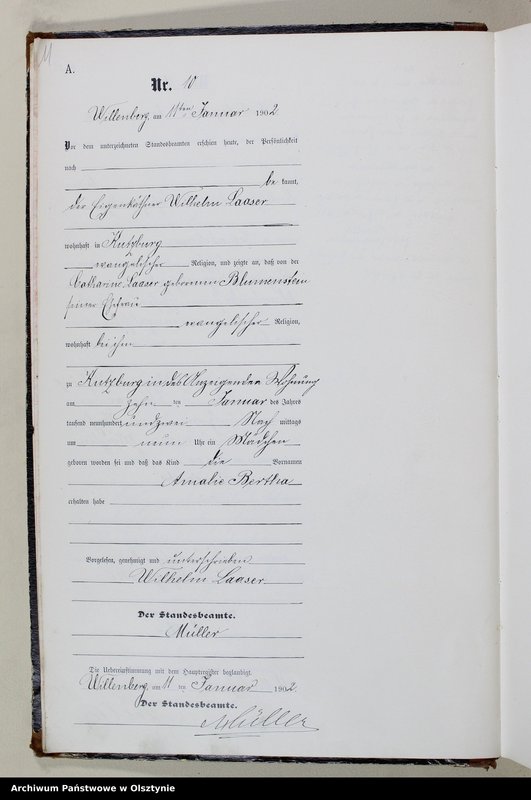 11
A.
Nr. 10
Willenberg, am 11ten Januar 1902.
Vor dem unterzeichneten Standesbeamten erschien heute, der Persönlichkeit
nach
be kannt,
der Eigenkäthner Wilhelm Laaser
wohnhaft in Kutzburg
evangelischer Religion, und zeigte an, daß von der
Catharine Laaser geborenen Blumenstein
seiner Ehefrau
evangelischer Religion,
wohnhaft bei ihm
zu Kutzburg in des Anzeigenden Wohnung
am zehn ten Januar des Jahres
tausend neunhundert und zwei Nach mittags
um neun Uhr ein Mädchen
geboren worden sei und daß das Kind die Vornamen
Amalie Bertha
erhalten habe
Vorgelesen, genehmigt und unterschrieben
Wilhelm Laaser
Der Standesbeamte.
Müller
Die Uebereinstimmung mit dem Hauptregister beglaubigt.
Willenberg, am 11 ten Januar 1902.
Der Standesbeamte.
Müller
Archiwum Państwowe w Olsztynie